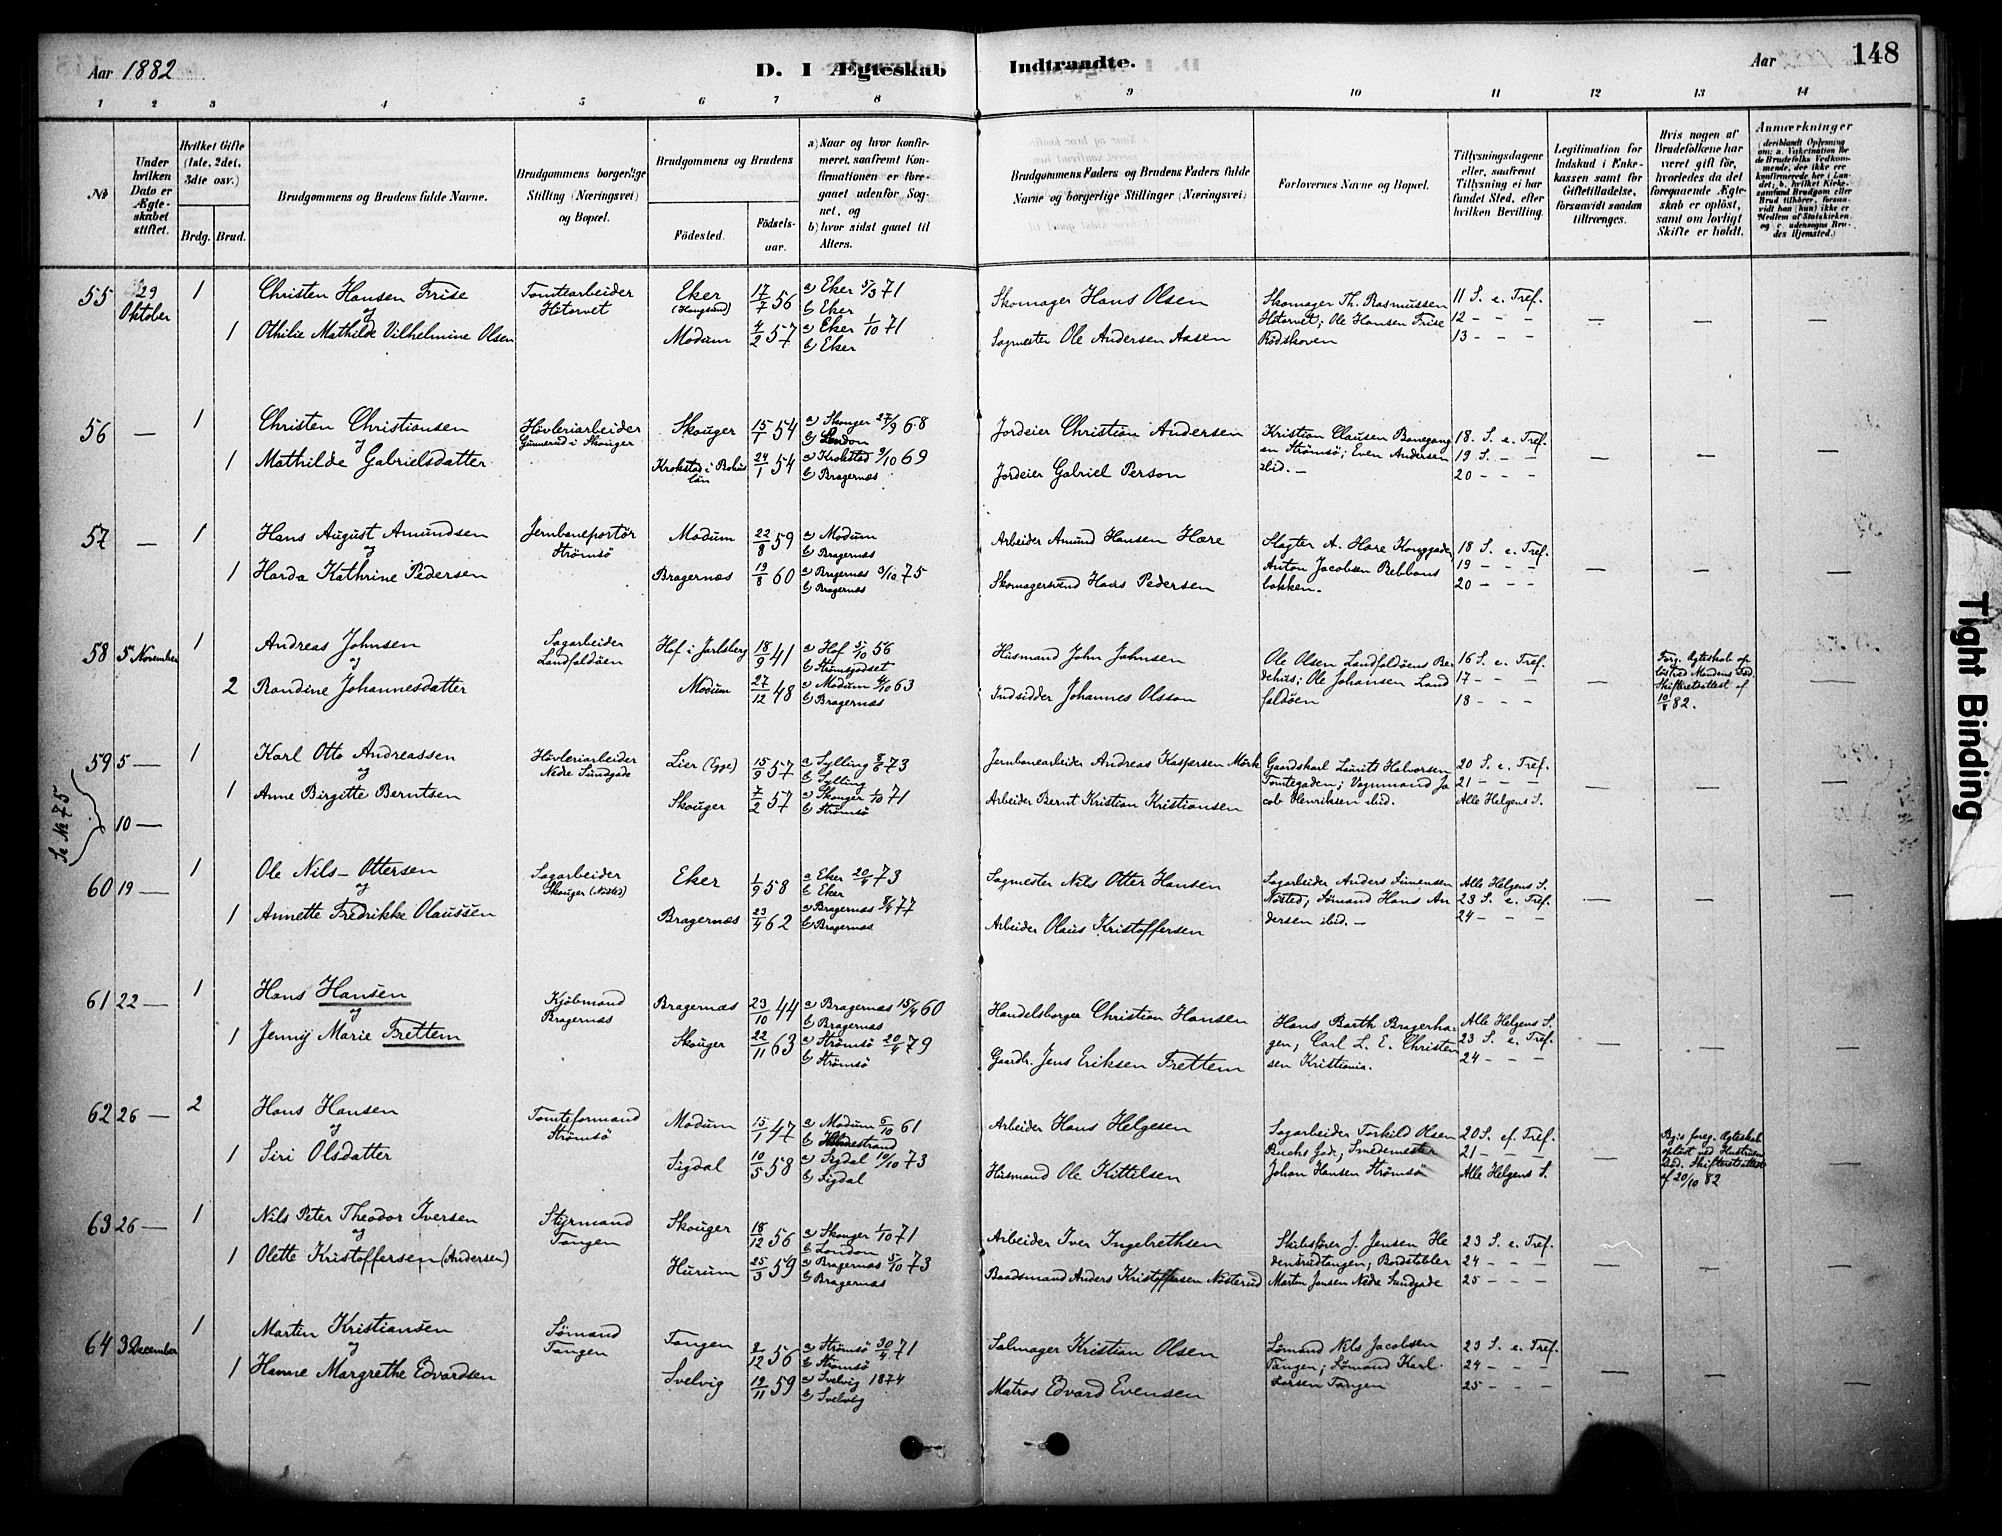 Aar 1882
D. I Ægteskab Indtraadte.
Aar 148
1 2 3 4 5 6 7 8 9 10 11 12 13 14
No
Under hvilken Dato er Ægteskabet stiftet.
Hvilket Gifte (1ste, 2det, 3die osv.)
Brdg. Brud.
Brudgommens og Brudens fulde Navne.
Brudgommens borgerlige Stilling (Næringsvei) og Bopæl.
Brudgommens og Brudens
Fødested.
Fødselsaar.
a) Naar og hvor konfirmeret, saafremt Konfirmationen er foregaaet udenfor Sognet, og
b) hvor sidst gaaet til Alters.
Brudgommens Faders og Brudens Faders fulde Navne og borgerlige Stillinger (Næringsvei)
Forlovernes Navne og Bopæl.
Tillysningsdagene eller, saafremt Tillysning ei har fundet Sted, efter hvilken Bevilling.
Legitimation for Indskud i Enkekassen samt for Giftetilladelse, forsaavidt saadan tiltrænges.
Hvis nogen af Brudefolkene har været gift før, hvorledes da det foregaaende Ægteskab er opløst, samt om lovligt Skifte er holdt.
Anmærkninger
55 29 Oktober 1 Christen Hansen Frise Tomtearbeider Høtorvet Eker (Hougsund) 17/7 56 a) Eker 5/3 71 b) Eker Skomager Hans Olsen Skomager Th. Rasmussen 11 S. e. Tref.
og Høtorvet; Ole Hansen Frise 12 - - -
1 Othilie Mathilde Vilhelmine Olsen Modum 4/2 57 a) Eker 1/10 71 b) Eker Sagmester Ole Andersen Aasen Rødskoven 13 - - -
56 — 1 Christen Christiansen Høvleriarbeider Gunnerud i Skouger Skouger 15/1 54 a) Skouger 27/9 68 b) London Jordeier Christian Andersen Kristian Clausen Banegang 18. S. e. Tref.
og en Strømsø; Even Andersen 19 S. - -
1 Mathilde Gabrielsdatter Krokstad i Bohuslän 24/1 54 a) Krokstad 9/10 69 b) Bragernæs Jordeier Gabriel Person ibid. — 20 - - -
57 — 1 Hans August Amundsen Jernbaneportør Strømsø Modum 22/8 59 a) Modum b) Bragernæs Arbeider Amund Hansen Hære Slagter A. Hære Konggade, 18 S. e. Tref.
og Anton Jacobsen 19 - - -
1 Harda Kathrine Pedersen Bragernæs 19/8 60 a) Bragernæs 3/10 75 b) Bragernæs Skomagersvend Hans Pedersen bakken. 20 - - -
58 5 November 1 Andreas Johnsen Sagarbeider Landfaldøen Hof i Jarlsberg 18/9 41 a) Hof 5/10 56 b) Strømsgodset Husmand John Johnsen Ole Olsen Landfaldøens Be- 16 S. e. Tref. Forg. Ægteskab op
og dehus; Ole Johansen Land 17 - - - løst ved Mandens Død.
2 Randine Johannesdatter Modum 27/12 48 a) Modum 4/10 63 b) Bragernæs Indsidder Johannes Olsson faldøen 18 - - - Skifteretsattest af 10/8 82.
59 5 — 1 Karl Otto Andreassen Høvleriarbeider Nedre Sundgade Lier (Egge) 15/9 57 a) Sylling 8/6 73 b) Sylling Jernbanearbeider Andreas Kaspersen Mörk Gaardskarl Laurits Halvorsen 20 S. e. Tref.
og Tomtegaden; Vognmand Ja 21 - - -
1 Anne Birgitte Berntsen Skouger 7/2 57 a) Skouger 1/10 71 b) Strømsø Arbeider Bernt Kristian Kristiansen cob Henriksen ibid. Alle Helgens S.
Se No 75
10 —
60 19 — 1 Ole Nils-Ottersen Sagarbeider Skouger (Nøsted) Eker 1/9 58 a) Eker 20/4 73 b) Eker Sagmester Nils Otter Hansen Sagarbeider Anders Simensen Alle Helgens S.
og Nøsted; Sømand Hans An 23 S. e. Tref.
1 Annette Fredrikke Olaussen Bragernæs 23/4 62 a) Bragernæs 8/4 77 b) Bragernæs Arbeider Olaus Kristoffersen dersen ibid. — 24 - - -
61 22 — 1 Hans Hansen Kjøbmand Bragernæs Bragernæs 23/10 44 a) Bragernæs 15/4 60 b) Bragernæs Handelsborger Christian Hansen Hans Barth Bragerha- Alle Helgens S.
og gen; Carl L. E. Christen 23 S. e. Tref.
1 Jenny Marie Frettem Skouger 22/11 63 a) Strømsø 20/4 79 b) Strømsø Gaardbr. Jens Eriksen Frettem sen Kristiania. 24 - - -
62 26 — 2 Hans Hansen Tomteformand Strømsø Modum 15/1 47 a) Modum 6/10 61 b) Holmestrand Arbeider Hans Helgesen Sagarbeider Torkild Olsen 20 S. ef. Tref.
og Buchs Gade; Smedemester 21 - - - opløst ved Hustruens
1 Siri Olsdatter Sigdal 10/5 58 a) Sigdal 19/10 73 b) Sigdal Husmand Ole Kittelsen Johan Hansen Strømsø Alle Helgens S. Død. Skifteretsattest af 20/10 82
63 26 — 1 Nils Peter Theodor Iversen Styrmand Tangen Skouger 18/12 56 a) Skouger 1/10 71 b) London Arbeider Iver Ingebrethsen Skibsfører J. Jensen He 23 S. e. Tref.
og densrudtangen; Bødstebler 24 - - -
1 Olette Kristoffersen (Andersen) Hurum 25/3 59 a) Bragernæs 5/10 73 b) Bragernæs Baadsmand Anders Kristoffersen Nøsterud Martin Jensen Nedre Sundgade 25 - - -
64 3 December 1 Martin Kristiansen Sømand Tangen Tangen 2/12 56 a) Strømsø 30/4 71 b) Strømsø Salmager Kristian Olsen Sømand Nils Jacobsen 23 S. e. Tref.
og Tangen; Sømand Karl 24 - - -
1 Hanne Margrethe Edvardsen Svelvig 19/11 59 a) Svelvig 1874 b) Svelvig Matros Edvard Evensen Larsen Tangen 25 - - -
Tight Binding